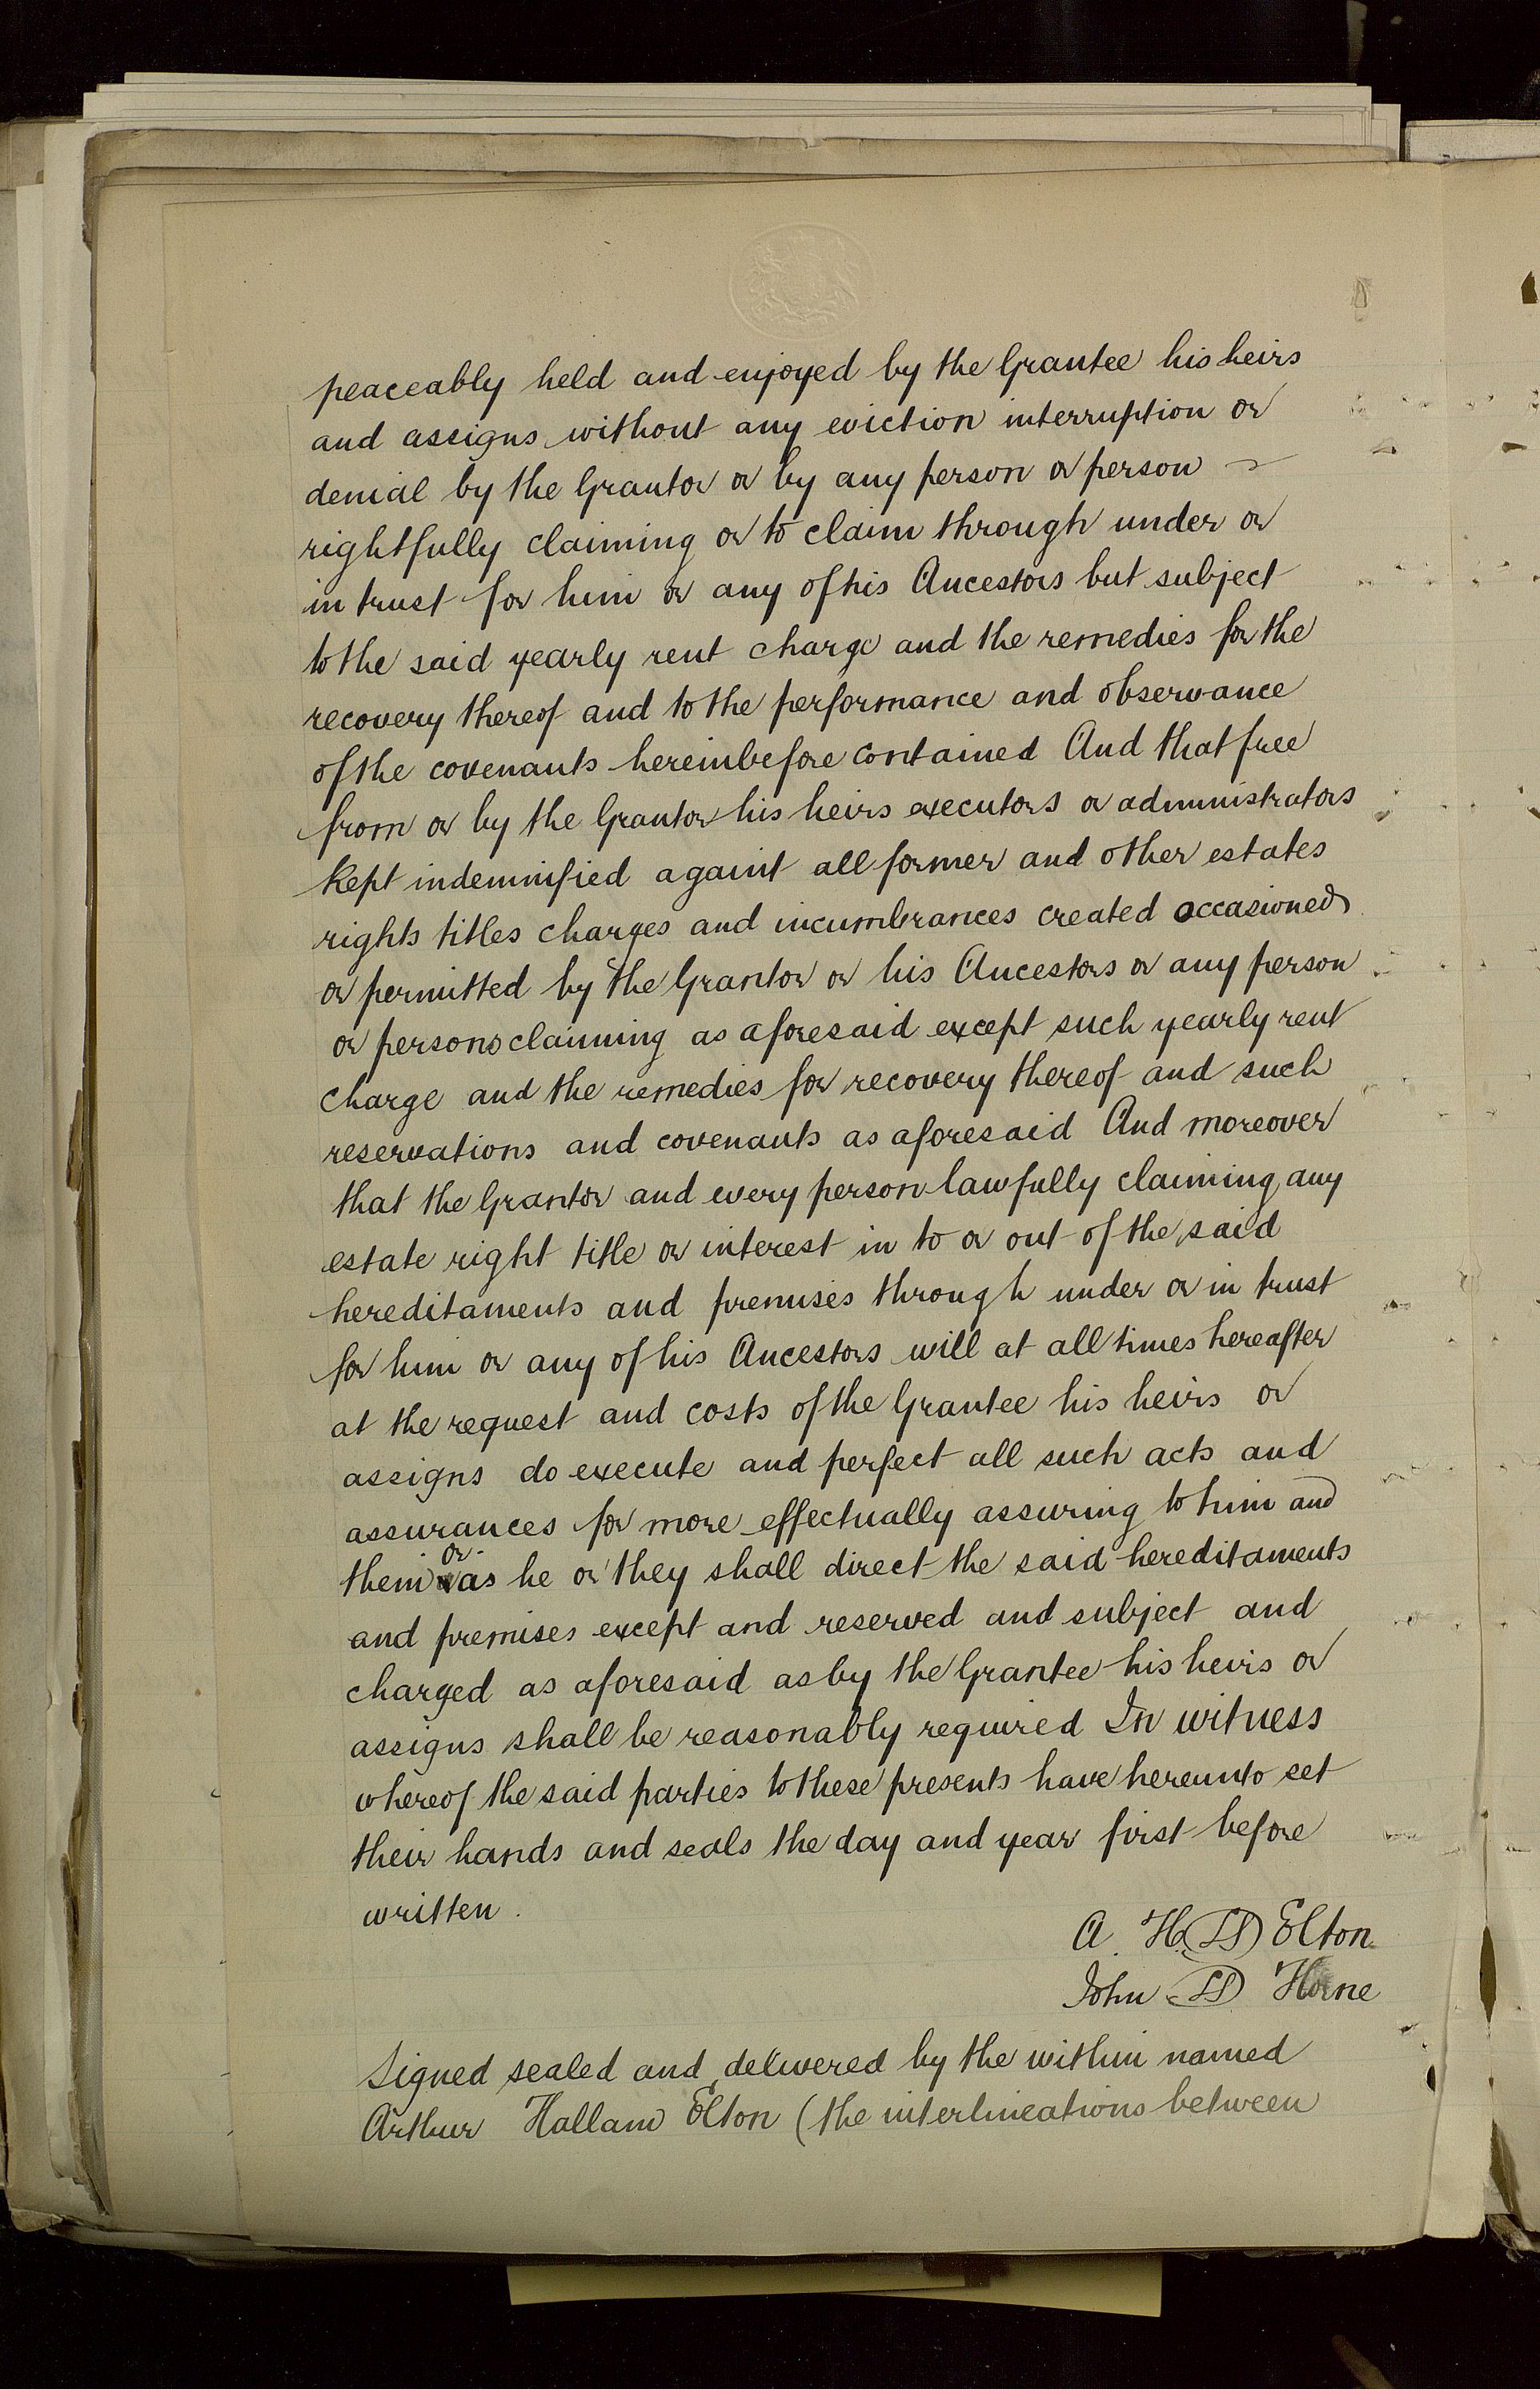 peaceably held and enjoyed by the Grantee his heirs
and assigns without any eviction interruption or
denial by the Grantor or by any person or person
rightfully claiming or to claim through under or
in trust for him or any of his Ancestors but subject
to the said yearly rent charge and the remedies for the
recovery thereof and to the performance and observance
of the covenants hereinbefore contained And that free
from or by the Grantor his heirs executors or administrators
kept indemnified against all former and other estates
rights titles charges and incumbrances created occasioned
or permitted by the Grantor or his Ancestors or any person
or persons claiming as aforesaid except such yearly rent
charge and the remedies for recovery thereof and such
reservations and covenants as aforesaid And moreover
that the Grantor and every person lawfully claiming any
estate right title or interest in to or out of the said
hereditaments and premises through under or in trust
for him or any of his Ancestors will at all times hereafter
at the request and costs of the Grantee his heirs or
assigns do execute and perfect all such acts and
assurances for more effectually assuring to him and
them or as he or they shall direct the said hereditaments
and premises except and reserved and subject and
charged as aforesaid as by the Grantee his heirs or
assigns shall be reasonably required In witness
whereof the said parties to these presents have hereunto set
their hands and seals the day and year first before
written.
A. H. (LS) Elton
John (LS) Horne
Signed sealed and delivered by the within named
Arthur Hallam Elton (the interlineations between